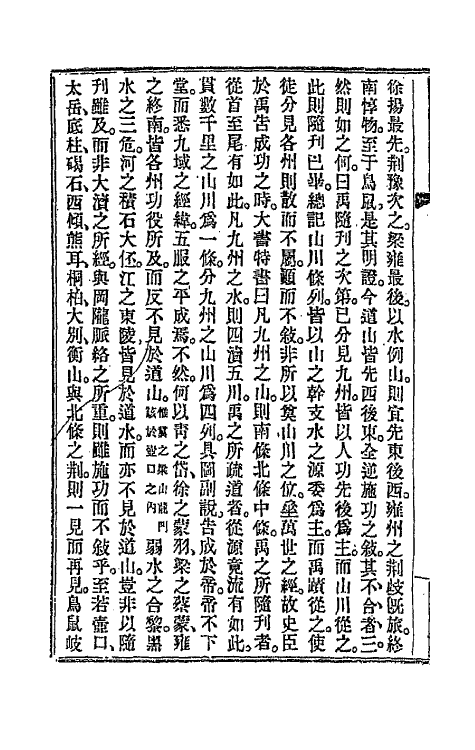 徐揚最先。荆豫次之。梁雍最後。以水例山。則宜先東後西。雍州之荆岐旣旅。終
南惇物。至于鳥鼠。是其明證。今道山皆先西後東。全逆施功之敘。其不合者三。
然則如之何。曰禹隨刊之次第。已分見九州。皆以人功先後爲主。而山川從之。
此則隨刊已畢。總記山川條列。皆以山之幹支水之源委爲主。而禹蹟從之。使
徒分見各州。則散而不屬。顚而不敘。非所以奠山川之位。垂萬世之經。故史臣
於禹告成功之時。大書特書曰。凡九州之山。則南條北條中條。禹之所隨刊者。
從首至尾有如此。凡九州之水。則四瀆五川。禹之所疏道者。從源竟流有如此。
貫數千里之山川爲一條。分九州之山川爲四列。具圖副說。告成於帝。帝不下
堂。而悉九域之經緯。五服之平成焉。不然。何以靑之岱、徐之蒙羽、梁之蔡蒙、雍
之終南。皆各州功役所及。而反不見於道山。惟冀之梁山龍門該於壺口之內弱水之合黎。黑
水之三危。河之積石大伾。江之東陵。皆見於道水。而亦不見於道山。豈非以隨
刊雖及。而非大瀆之所經。與岡隴脈絡之所重。則雖施功而不敘乎。至若壺口、
太岳、底柱、碣石、西傾、熊耳、桐柏、大別、衡山、與北條之荆。則一見而再見。鳥鼠岐